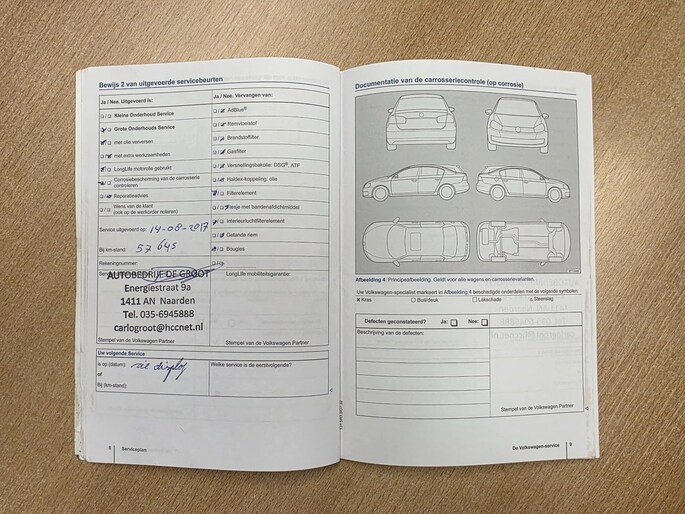 Bewijs 2 van uitgevoerde servicebeurten
Ja / Nee. Uitgevoerd is:
Kleine Onderhoud Service
Grote Onderhouds Service
met olie verversen
met extra werkzaamheden
LongLife motorolie gebruikt
Corrosiebescherming van de carrosserie
controleren
Reparatieadvies
Wens van de klant
(ook op de werkorder noteren)
Service uitgevoerd op: 14-08-2017
Bij km-stand: 57645
Rekeningnummer:
AUTOBEDRIJF DE GROOT
Energiestraat 9a
1411 AN Naarden
Tel. 035-6945888
carlogroot@hccnet.nl
Stempel van de Volkswagen Partner
Ja / Nee. Vervangen van:
AdBlue®
Remvloeistof
Brandstoffilter
Gasfilter
Versnellingsbakolie: DSG®, ATF
Haldex-koppeling: olie
Filterelement
Flesje met bandenafdichtmiddel
Interieurluchtfilterelement
Getande riem
Bougies
LongLife mobiliteitsgarantie:
Stempel van de Volkswagen Partner
Uw volgende Service
is op (datum): zie display
of
Bij (km-stand):
Welke service is de eerstvolgende?
8 Serviceplan
Documentatie van de carrosseriecontrole (op corrosie)
Afbeelding 4 Principeafbeelding. Geldt voor alle wagens en carrosserievarianten.
Uw Volkswagen-specialist markeert in Afbeelding 4 beschadigde onderdelen met de volgende symbolen:
× Kras ○ Buil/deuk □ Lakschade △ Steenslag
Defecten geconstateerd? Ja: Nee:
Beschrijving van de defecten:
Stempel van de Volkswagen Partner
De Volkswagen-service 9